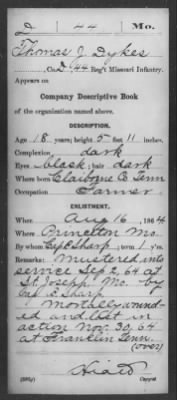 D 44 Mo.
Thomas J. Dykes
Co. D, 44 Reg't Missouri Infantry.
Appears on
Company Descriptive Book
of the organization named above.
DESCRIPTION.
Age 18 years; height 5 feet 11 inches.
Complexion dark
Eyes black; hair dark
Where born Claiborne Co Tenn
Occupation Farmer
ENLISTMENT.
When Aug 16, 1864
Where Princeton Mo.
By whom E. Sharp; term 1 y'rs.
Remarks: Mustered into
service Sep 2, 64 at
St. Joseph Mo. by
E. Sharp
Mortally wound-
ed and left in
action Nov. 30, 64
at Franklin Tenn.
(over)
Copyist.